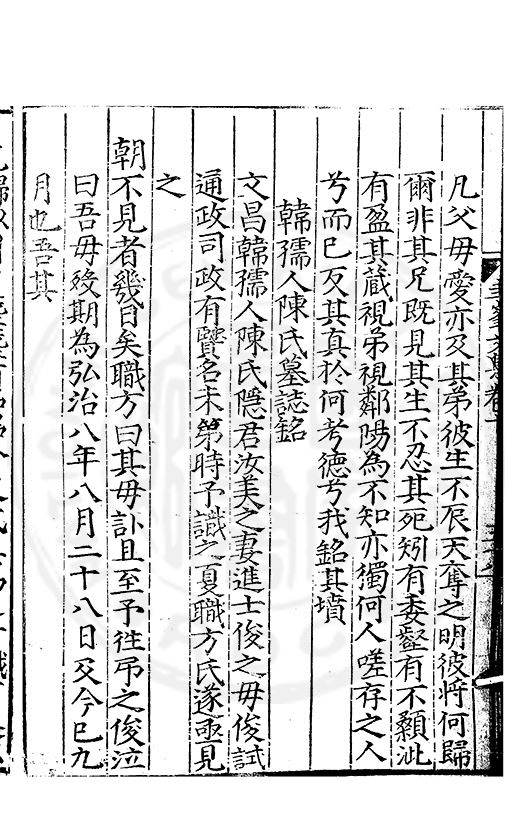 凡父母愛亦及其弟彼生不辰天奪之明彼將何歸
爾非其兄既見其生不忍其死矧有委壑有不顙泚
有盈其蔵視弟視鄰陽為不知亦獨何人嗟存之人
兮而已反其真於何考德兮我銘其墳
韓孺人陳氏墓誌銘
文昌韓孺人陳氏隱君汝美之妻進士俊之母俊試
通政司政有賢名未第時予識之夏職方氏遂亟見
之
朝不見者幾日矣職方曰其母訃且至予徃弔之俊泣
曰吾母歿期為弘治八年八月二十八日及今已九
月也吾其